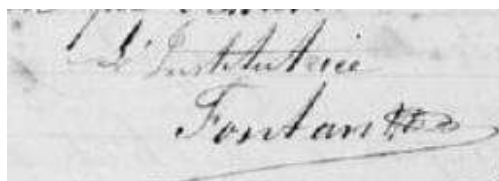 L'Institutrice
Fontan